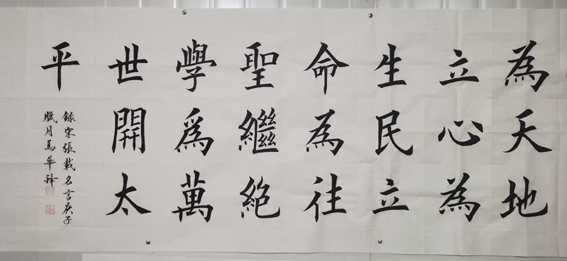 為天地
立心為
生民立
命為往
聖繼絕
學爲萬
世開太
平
錄宋張載名言庚子
臘月馬